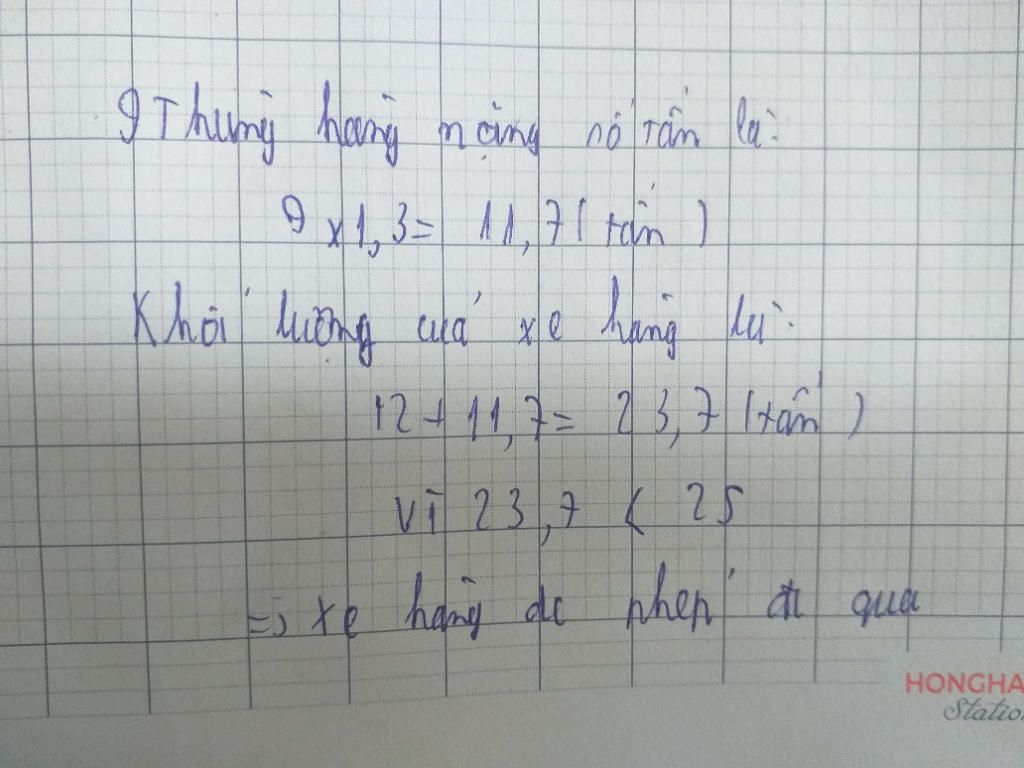 9 Thùng hàng nặng số tấn là:
9 x 1,3 = 11,7 ( tấn )
Khối lượng của xe hàng là:
12 + 11,7 = 23,7 ( tấn )
Vì 23,7 < 25
=> xe hàng dc phép đi qua
HONGHA
Statio